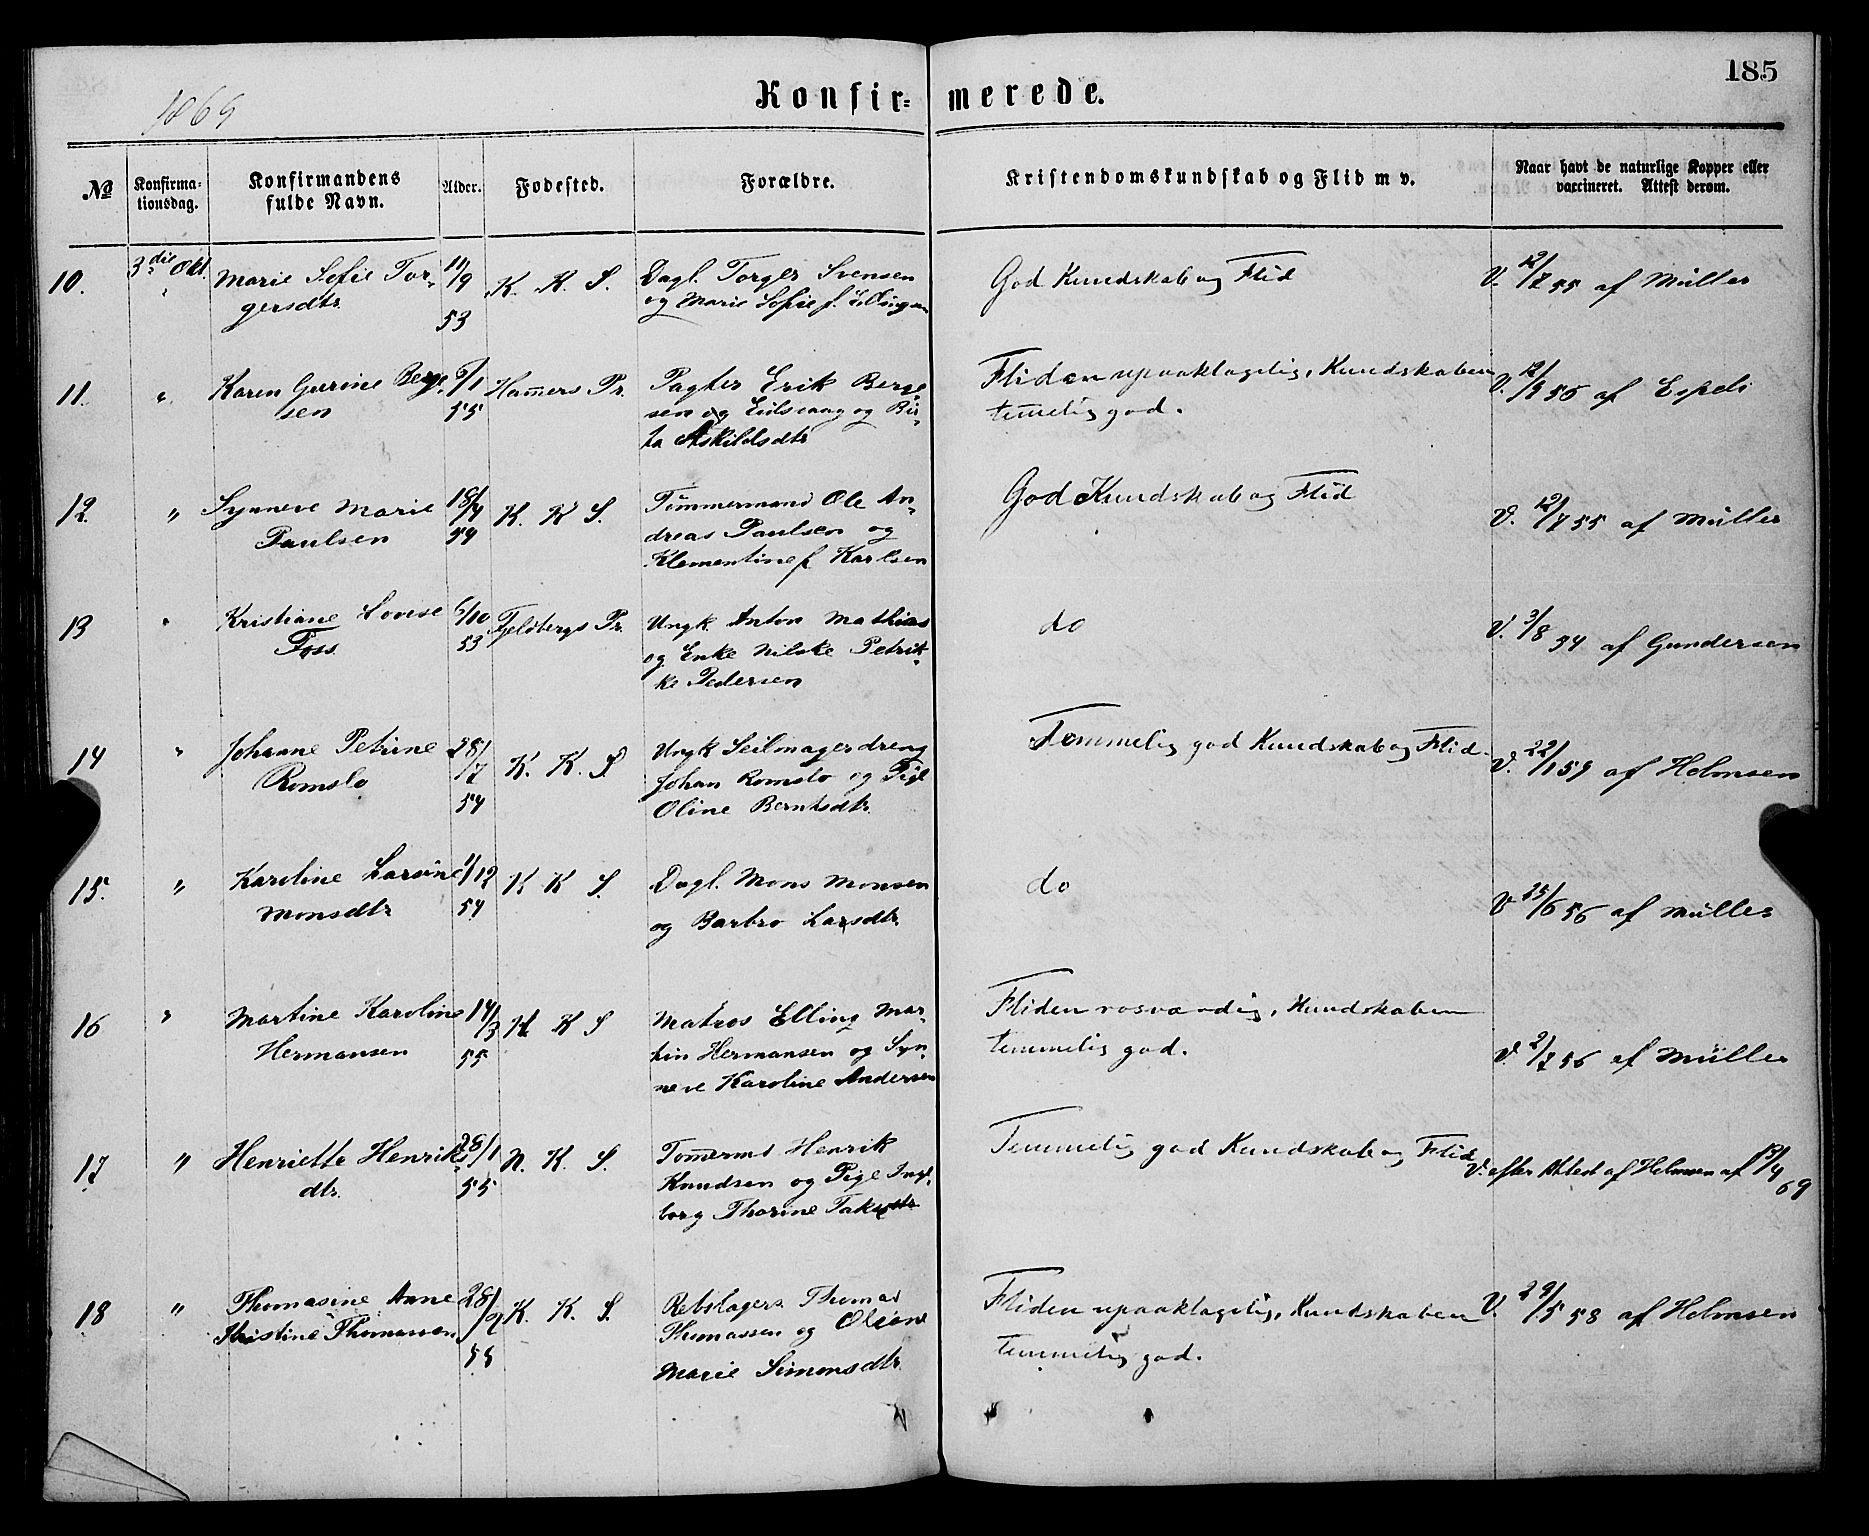 185
1869
Konfir= merede.
No
Konfirma-
tionsdag.
Konfirmandens
fulde Navn.
Alder.
Fødested.
Forældre.
Kristendomskundskab og Flid m v.
Naar havt de naturlige Kopper eller
vaccineret. Attest derom.
10. 3die Okt. Marie Sofie Tor- 11/9 K. K. S. Dagl. Torger Svensen God Kundskab og Flid V. 12/7 55 af Müller
gersdtr. 53 og Marie Sofie f. Ellingsen
11. " Karen Gurine Berge 6/1 Hamers Pr. Pagter Erik Berge Fliden upaaklagelig, Kundskaben V. 12/9 55 af Espeli
sen 55 sen og Eidsvaag og Bir- temelig god.
ta Askildsdtr
12. " Synneve Marie 18/4 K. K S. Tømmermand Ole An- God Kundskab og Flid V. 12/7 55 af Müller
Paulsen 54 dreas Paulsen og
Klementine f. Karlsen
13 " Kristiane Lovise 6/10 Fjeldbergs Pr. Ungk. Anton Mathias do V. 3/8 54 af Gundersen
Foss. 53 og Enke Nilske Petrik-
ke Pedersen
14 " Johanne Petrine 28/7 K. K. S. Ungk Seilmagerdreng Temmelig god Kundskab og Flid. V. 22/1 59 af Helmsen
Romslo 54 Johan Romslo og Pige
Oline Berntsdtr.
15. " Karoline Larsine 1/12 K K S. Dagl. Mons Monsen do V 25/6 56 af Müller
Monsdtr 54 og Barbro Larsdtr.
16 " Martine Karoline 14/3 K S Matros Elling Mar- Fliden rosværdig, Kundskaben V. 2/7 56 af Müller
Hermansen 55 tin Hermansen og Syn- temmelig god.
neve Karoline Andersen
17 " Henriette Henriks 28/1 N. K. S. Tømermd Henrik Temmelig god Kundskab og Flid V. efter Attest af Helmsen af 17/4 69
dtr. 55 Knudsen og Pige Inge-
borg Thorine
18 " Thomasine Anne 28/2 K. K. S. Rebslager Thomas Fliden upaaklagelig, Kundskaben V. 29/5 58 af Helmsen
Kristine Thomassen 55 Thomassen og Oliane temmelig god.
Marie Simonsdtr.